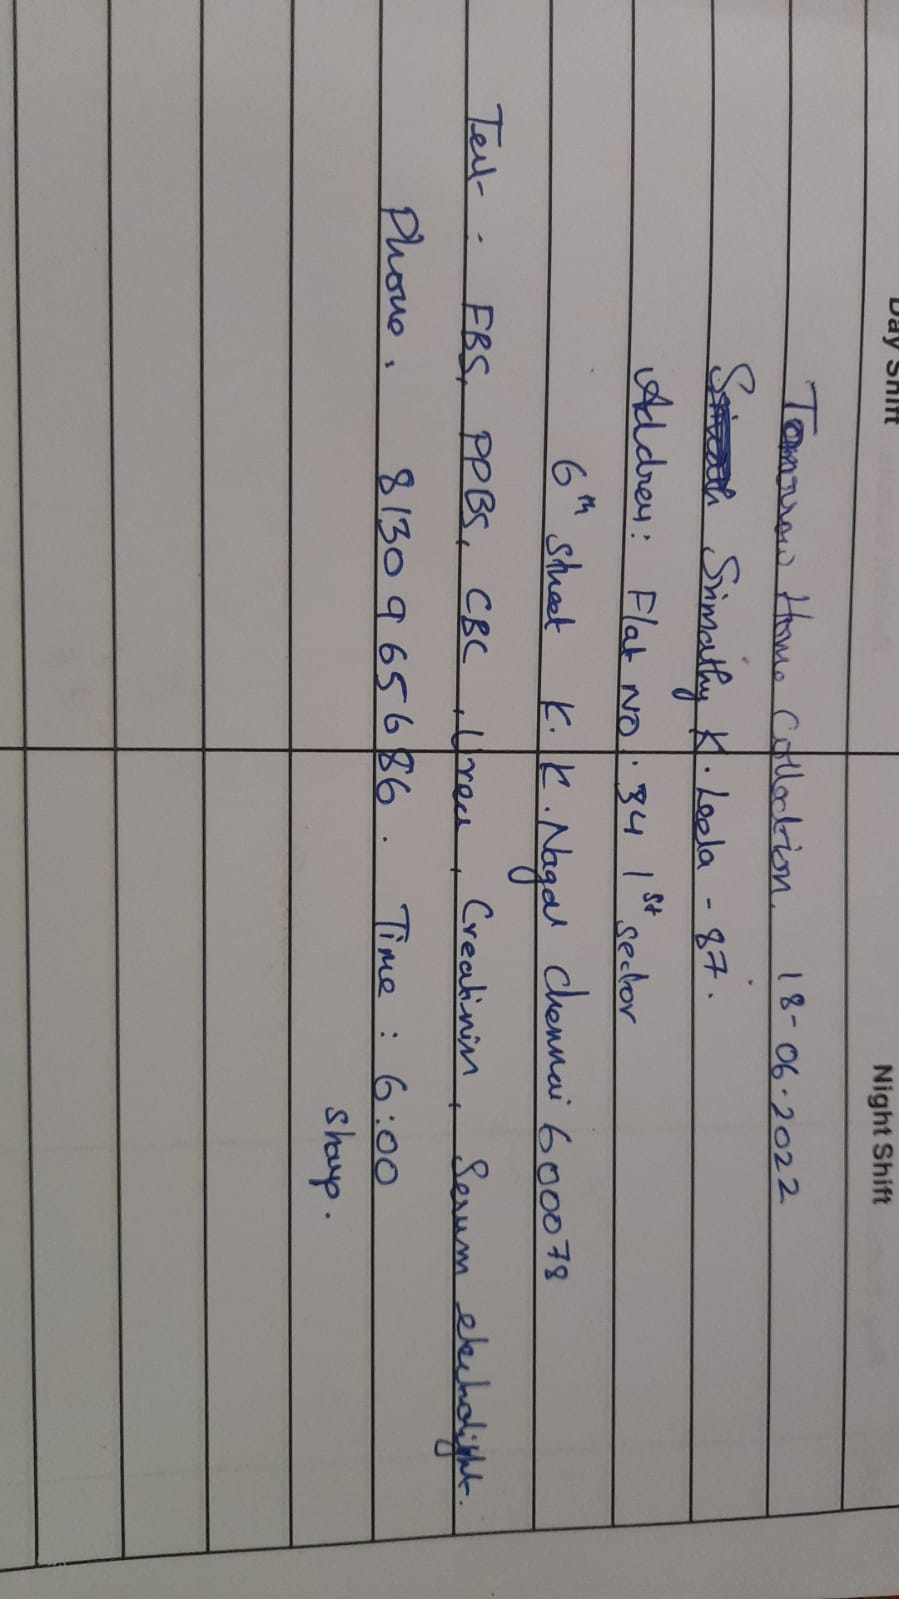 Day Shift Night Shift
Tomorrow Home Collection. 18-06-2022
Srimathy K. Leela - 87.
Address: Flat No: 34 1st sector
6th Street K. K. Nagar Chennai 600078
Test: FBS, PPBS, CBC, Urea, Creatinin, Serum electrolight.
Phone. 8130965686. Time: 6:00
Sharp.